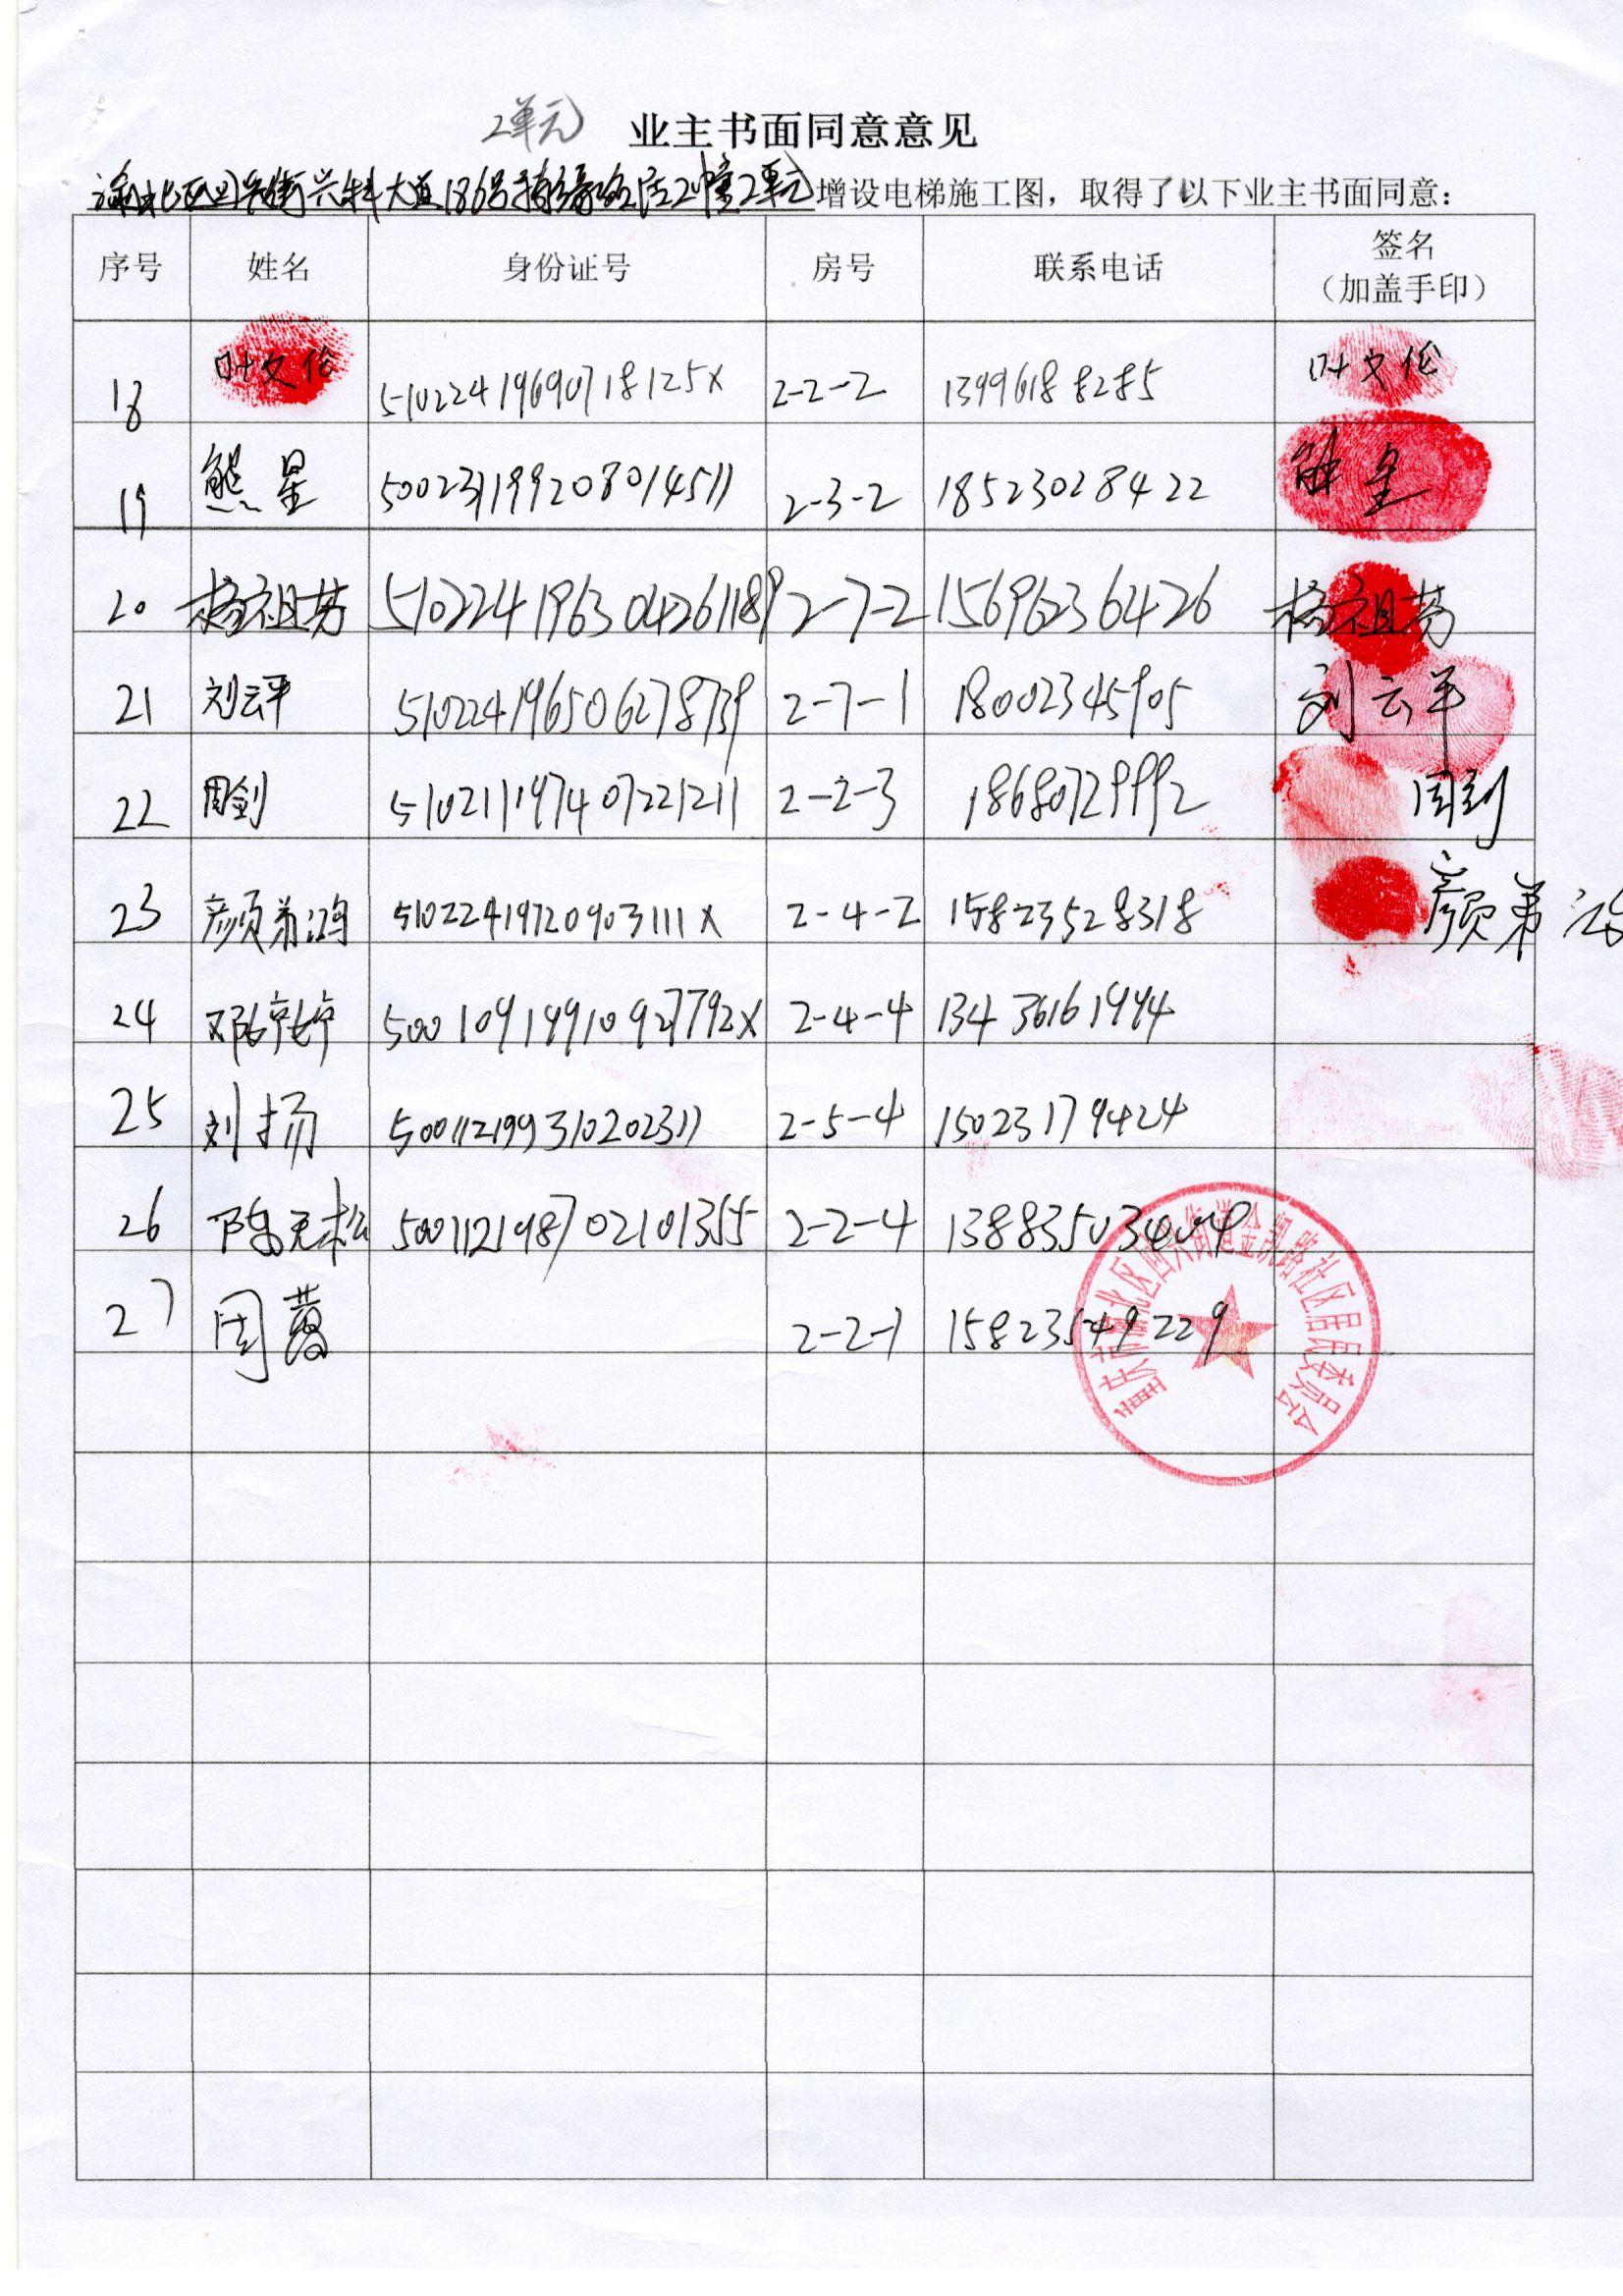 2单元 业主书面同意意见
渝北区回兴街兴科大道186号 2幢2单元增设电梯施工图，取得了以下业主书面同意：
序号 姓名 身份证号 房号 联系电话 签名（加盖手印）
18 叶文伦 51022419690718125X 2-2-2 13996188285 叶文伦
19 熊星 500231199208014511 2-3-2 18523028422 熊星
20 杨祖芬 510224196304261189 2-7-2 15696236426 杨祖芬
21 刘云平 510224196506278739 2-7-1 18002345905 刘云平
22 周剑 510211197407221211 2-2-3 18680729992 周剑
23 颜弟鸿 51022419720903111X 2-4-2 15823528318 颜弟鸿
24 邓婷婷 50010919910927792X 2-4-4 13436161994
25 刘扬 500112199310202311 2-5-4 15023179424
26 陈 松 500112198702101355 2-2-4 13883503404
27 周 2-2-1 15823549229
重庆市渝北区回兴街道金凯路社区居民委员会